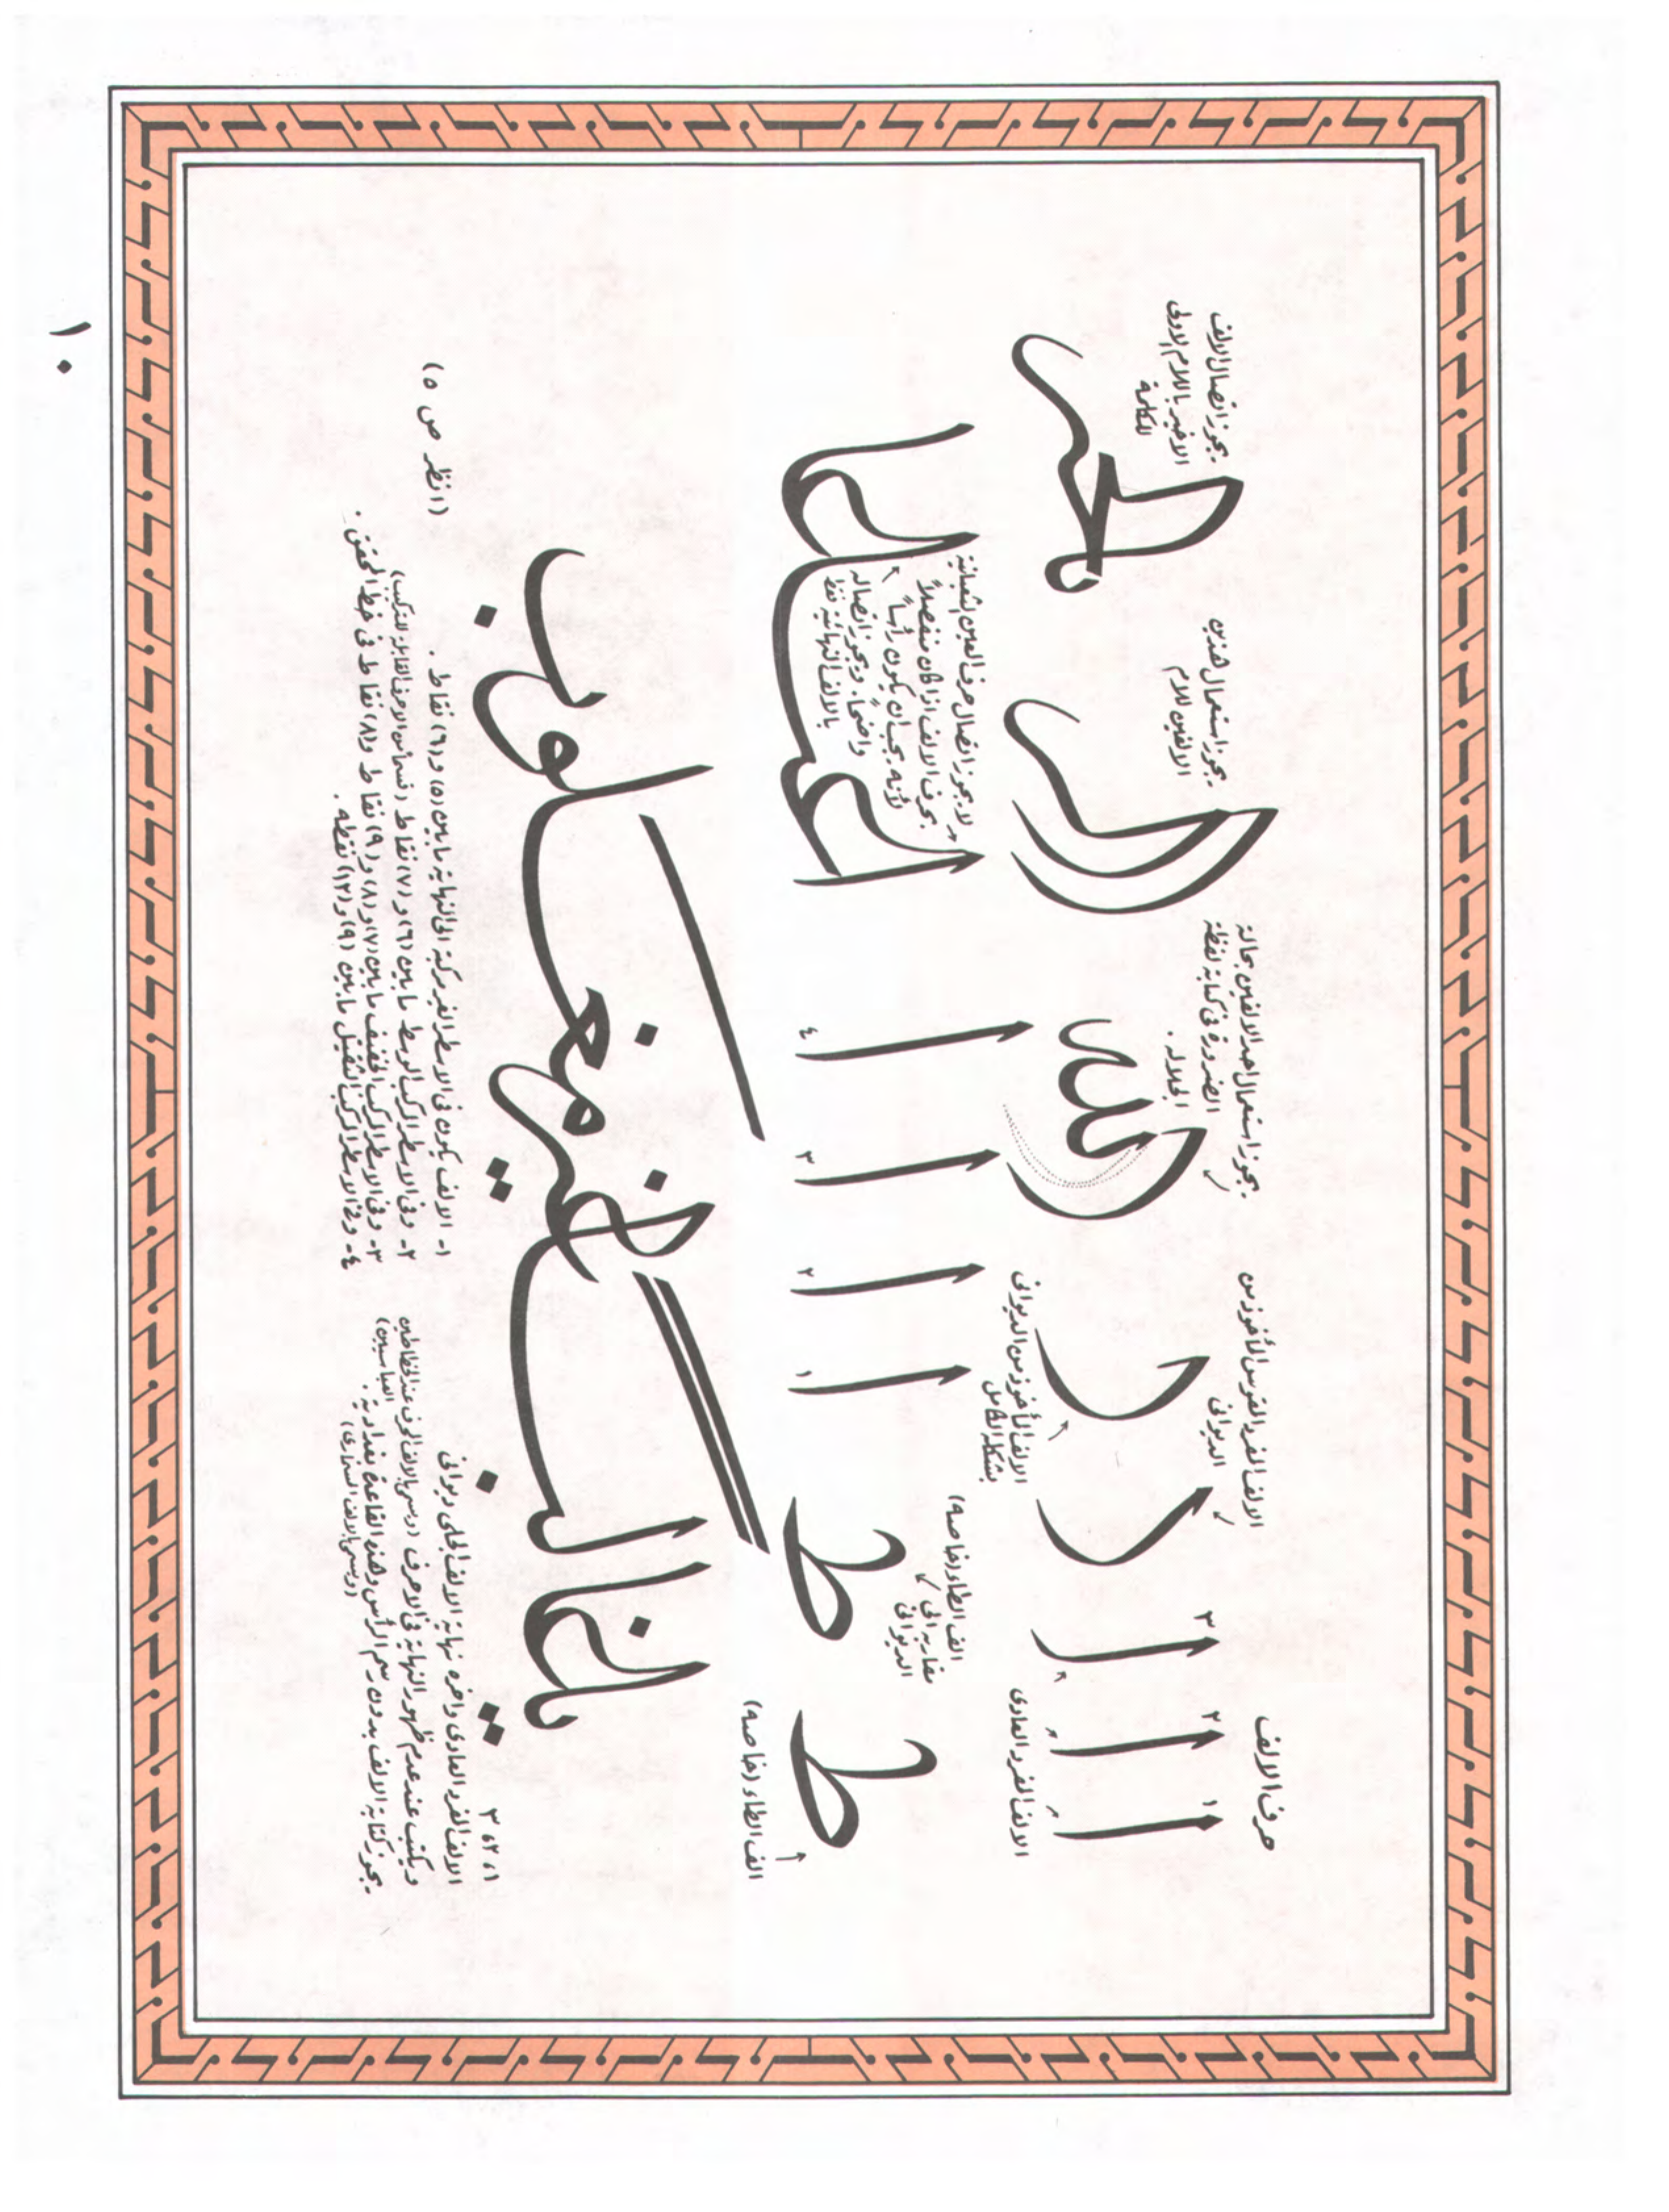 حرف الالف
١
٢
٣
الالف المفرد العادى
الالف المفرد المقوس المأخوذ من
الديوانى
الالف المأخوذ من الديوانى
بشكله الكامل
يجوز استعمال احد الالفين بحالة
الضرورة فى كتابة لفظة
الجلالة .
الله
يجوز استعمال هذين
الالفين للام
يجوز اتصال الالف
الاخير باللام الاولى
للكلمة
الف الطاء (خاصه)
ط
الف الطاء (خاصه)
مقاربه الى
الديوانى
ط
١
٢
٣
٤
لا يجوز اتصال حرف العين الثعبانية
بحرف الالف اذا كان منفصلاً
لأنه يجب ان يكون رأسا
واضحاً . ويجوز اتصاله
بالالف النهائية فقط
١، ٢، ٣
الالف المفرد العادى واخره نهاية الالف الجلى ديوانى
ويكتب عند عدم ظهور النهاية فى الاحرف (ويسمى بالالف المحرف عند الخطاطين
العباسيين)
يجوز كتابة الالف بدون رسم الرأس وهذه القاعدة بغدادية .
(ويسمى بالالف السمارى)
١- الالف يكون فى الاسطر الغير مركبة الى النهاية ما بين (٥) و (٦) نقاط .
٢- وفى الاسطر المركب الوسط ما بين (٦) و (٧) نقاط
٣- وفى الاسطر المركب الخفيف ما بين (٧) و (٨) و (٩) نقاط و (٨) نقاط فى خط المحقق .
٤- وفى الاسطر المركب الثقيل ما بين (٩) و (١٢) نقطه .
(انظر ص ٥)
١٠